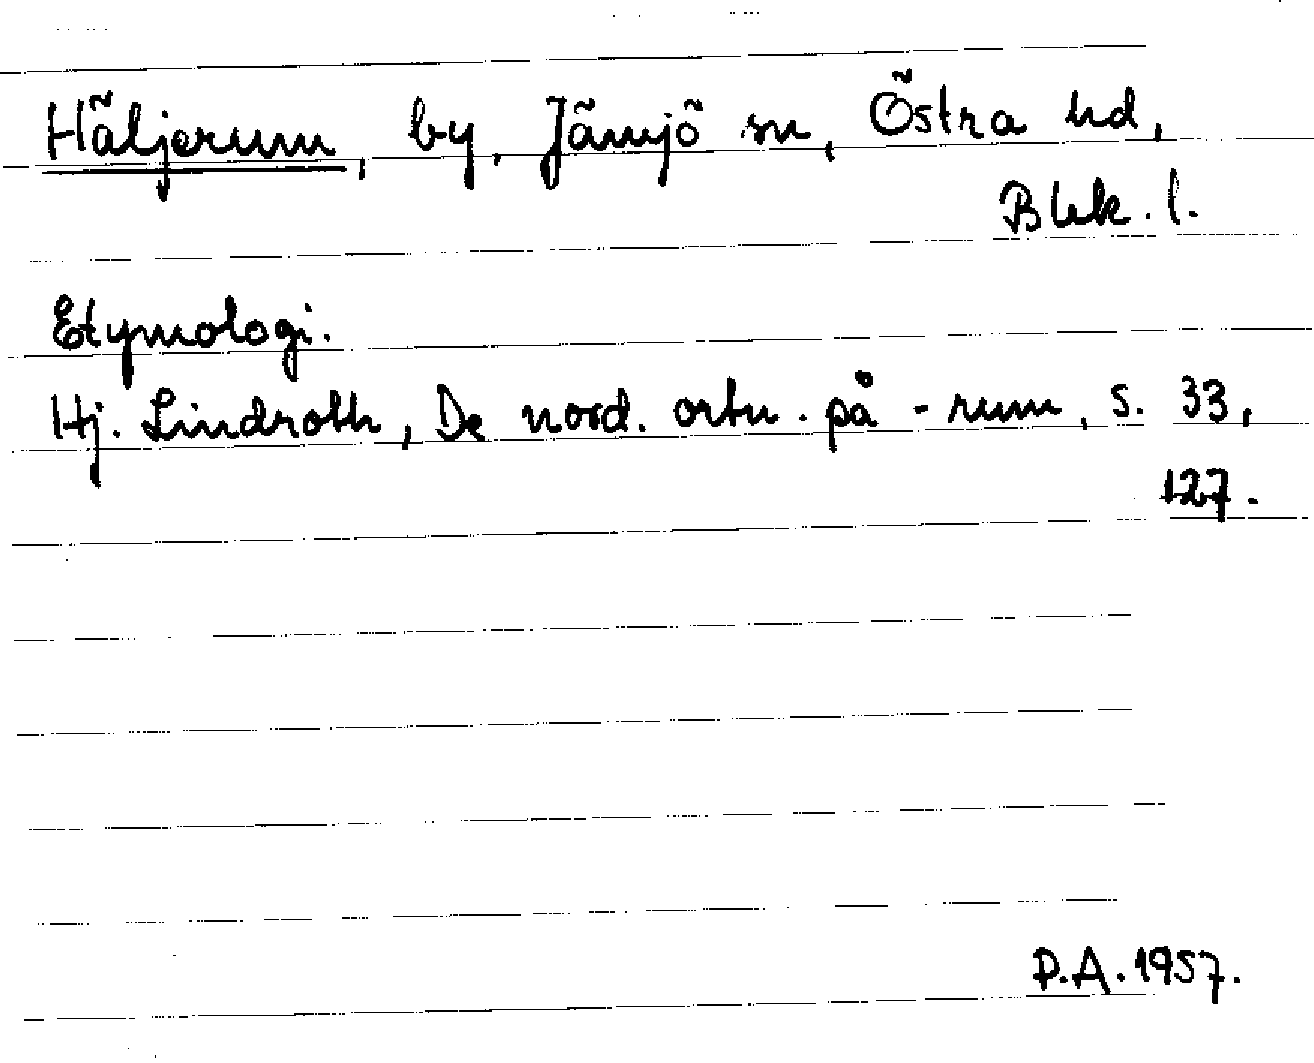 Häljerum, by, Jämjö sn, Östra hd,
Blek. l.
Etymologi.
Hj. Lindroth, De nord. ortn. på -rum, s. 33,
127.
P.A. 1957.